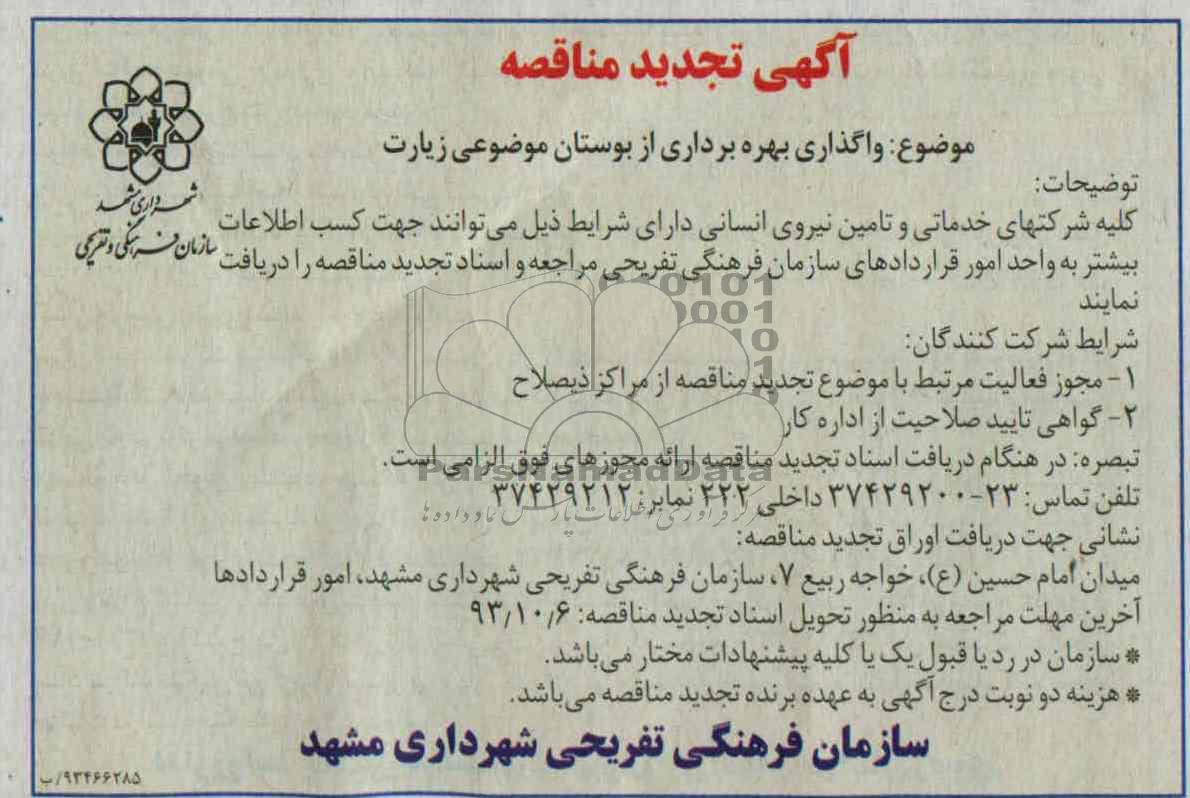 آگهی تجدید مناقصه
شهرداری مشهد
سازمان فرهنگی و تفریحی
موضوع: واگذاری بهره برداری از بوستان موضوعی زیارت
توضیحات:
کلیه شرکتهای خدماتی و تامین نیروی انسانی دارای شرایط ذیل می‌توانند جهت کسب اطلاعات
بیشتر به واحد امور قراردادهای سازمان فرهنگی تفریحی مراجعه و اسناد تجدید مناقصه را دریافت
نمایند
شرایط شرکت کنندگان:
۱- مجوز فعالیت مرتبط با موضوع تجدید مناقصه از مراکز ذیصلاح
۲- گواهی تایید صلاحیت از اداره کار
تبصره: در هنگام دریافت اسناد تجدید مناقصه ارائه مجوزهای فوق الزامی است.
ParsNamadData
تلفن تماس: ۲۳-۳۷۴۲۹۲۰۰ داخلی ۲۲۲ نمابر: ۳۷۴۲۹۲۱۲
مرکز فرآوری اطلاعات پارس نماد داده ها
نشانی جهت دریافت اوراق تجدید مناقصه:
میدان امام حسین (ع)، خواجه ربیع ۷، سازمان فرهنگی تفریحی شهرداری مشهد، امور قراردادها
آخرین مهلت مراجعه به منظور تحویل اسناد تجدید مناقصه: ۹۳/۱۰/۶
* سازمان در رد یا قبول یک یا کلیه پیشنهادات مختار می‌باشد.
* هزینه دو نوبت درج آگهی به عهده برنده تجدید مناقصه می‌باشد.
سازمان فرهنگی تفریحی شهرداری مشهد
۹۳۴۶۶۲۸۵/ب